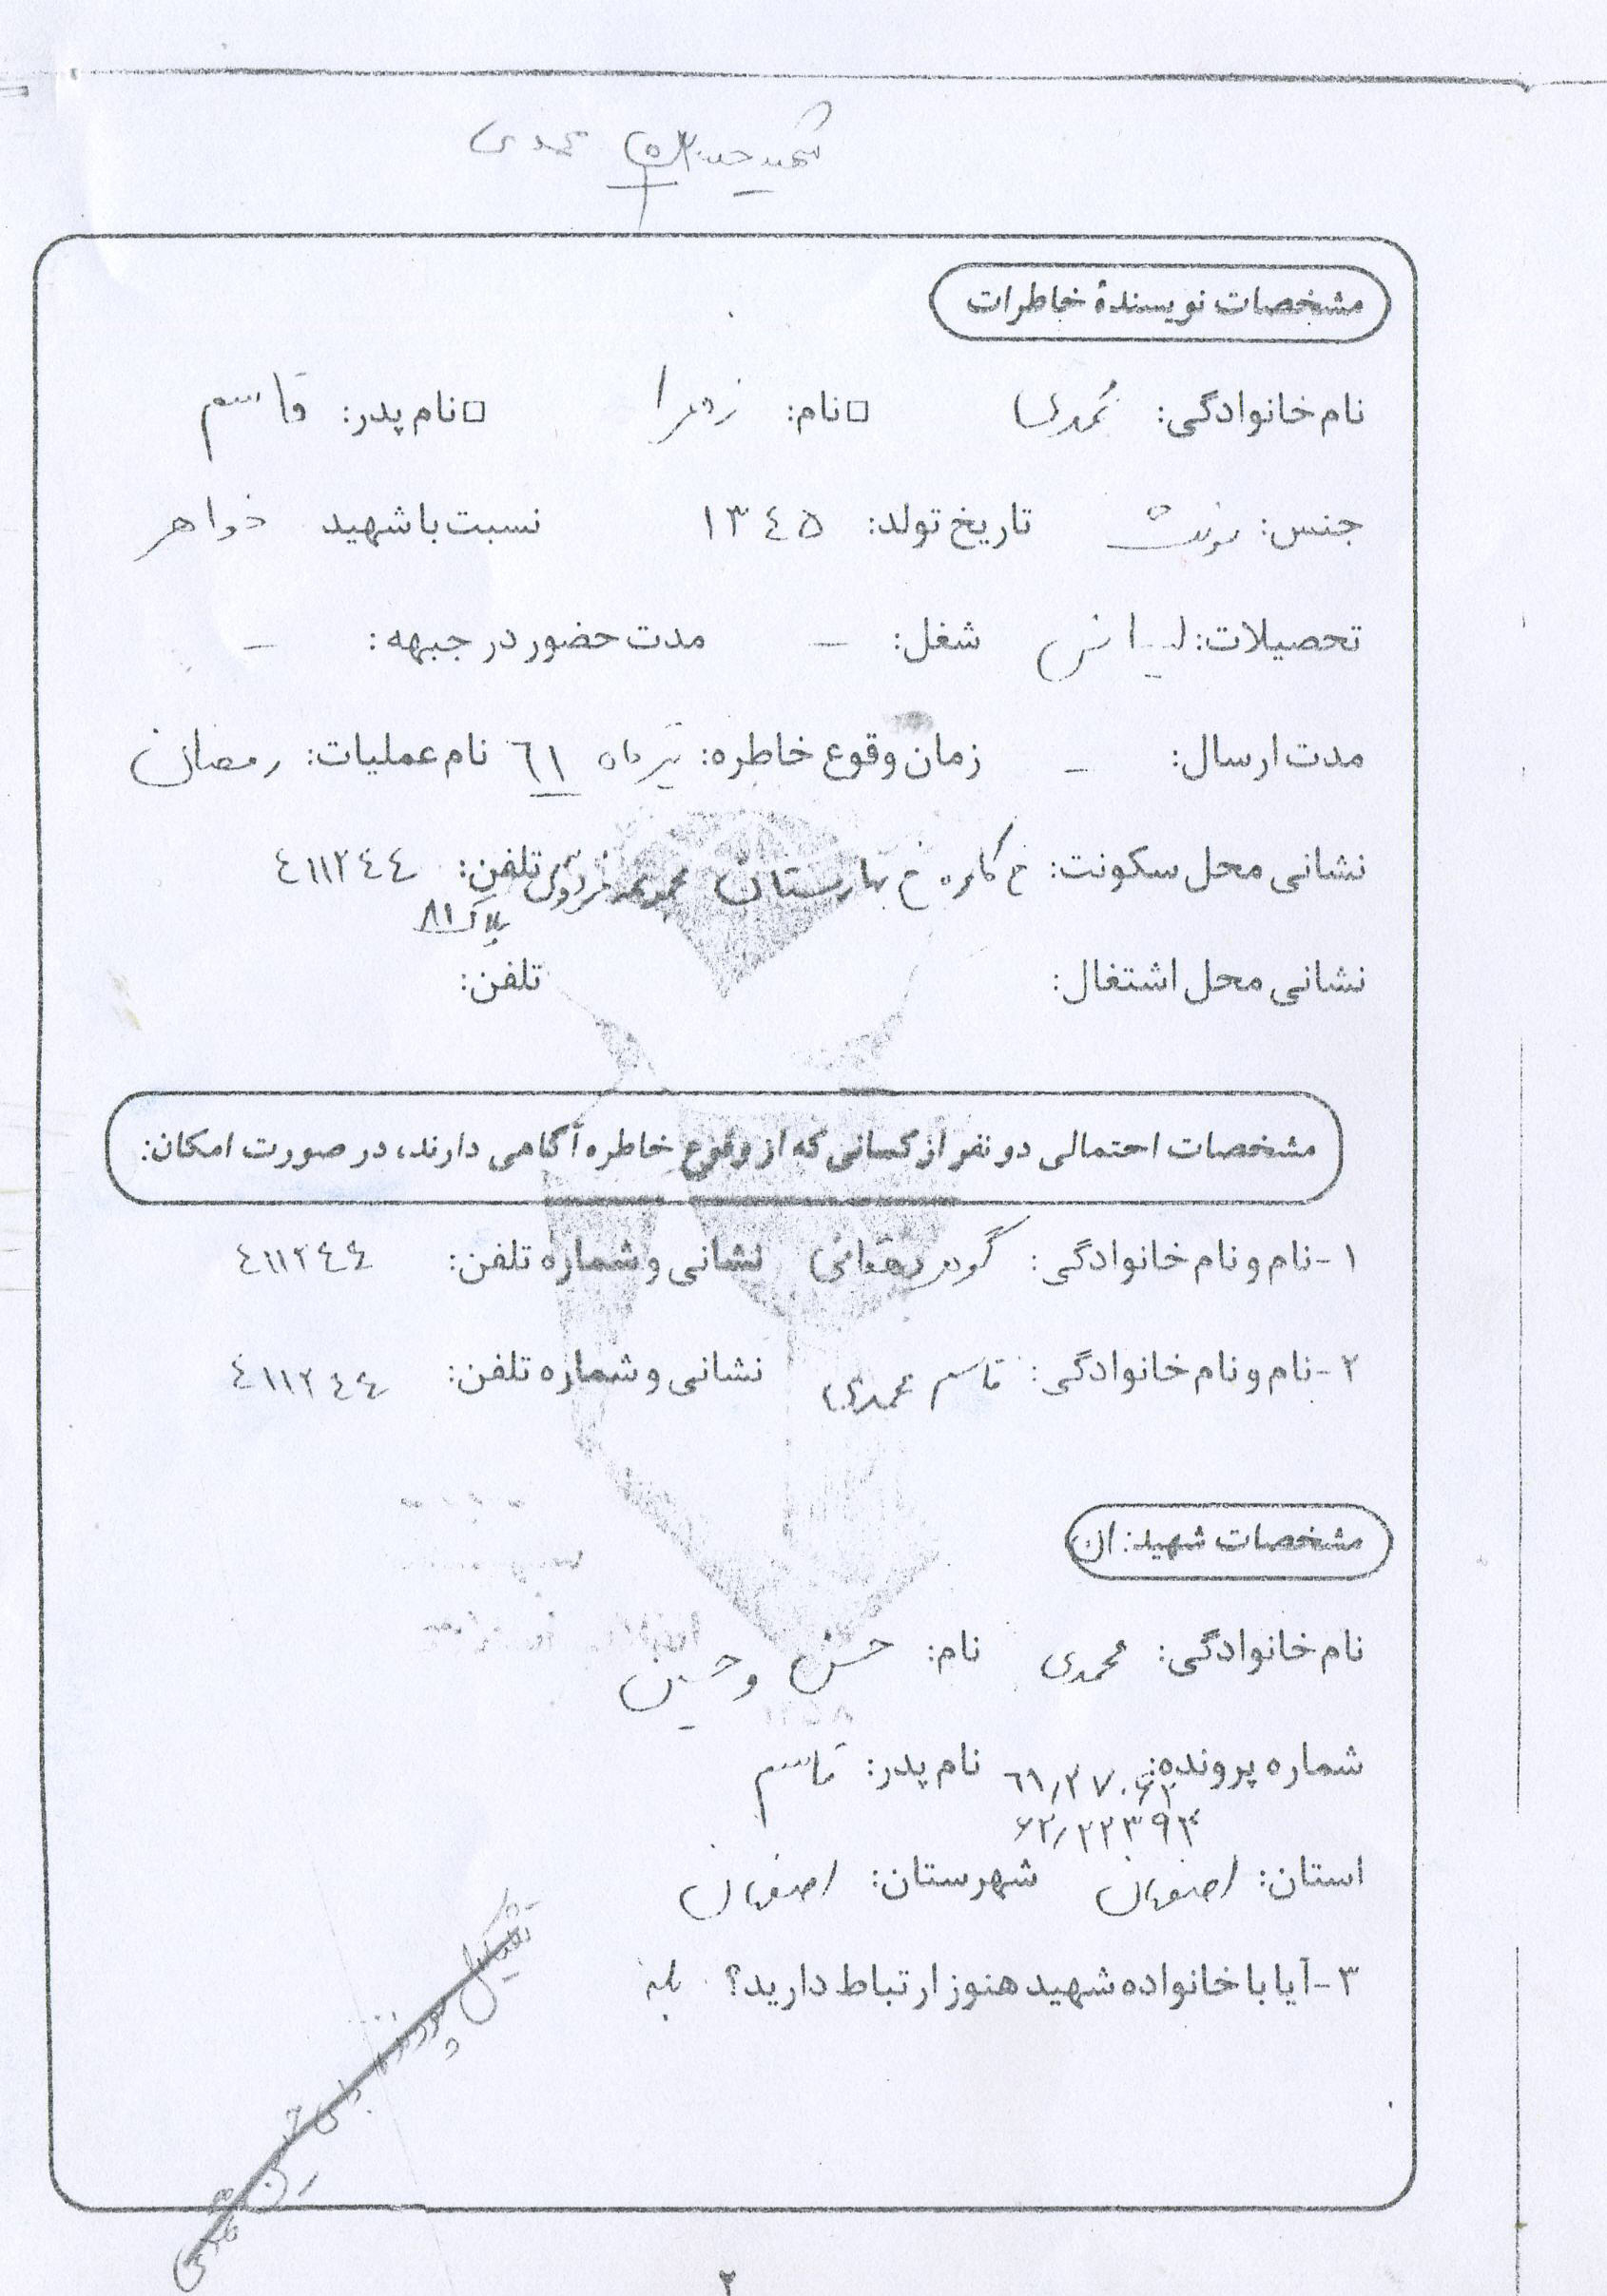 شهید حسن محمدی
مشخصات نویسندهٔ خاطرات
نام خانوادگی: محمدی □نام: زهرا □نام پدر: قاسم
جنس: مونث تاریخ تولد: ١٣٤٥ نسبت با شهید خواهر
تحصیلات: لیسانس شغل: – مدت حضور در جبهه: –
مدت ارسال: – زمان وقوع خاطره: تیر ماه ٦١ نام عملیات: رمضان
نشانی محل سکونت: خ کاوه خ بهارستان تلفن: ٤١١٢٤٤
پلاک ٨١
نشانی محل اشتغال: تلفن:
مشخصات احتمالی دو نفر از کسانی که از وقوع خاطره آگاهی دارند، در صورت امکان:
١-نام و نام خانوادگی: گوهر دهقانی نشانی و شماره تلفن: ٤١١٢٤٤
٢-نام و نام خانوادگی: قاسم محمدی نشانی و شماره تلفن: ٤١١٢٤٤
مشخصات شهید: ان
نام خانوادگی: محمدی نام: حسن و حسین
شماره پرونده: نام پدر: قاسم
۶٢/٢٢٣٩٣
استان: اصفهان شهرستان: اصفهان
٣-آیا با خانواده شهید هنوز ارتباط دارید؟ بله
تشکیل پرونده
٢